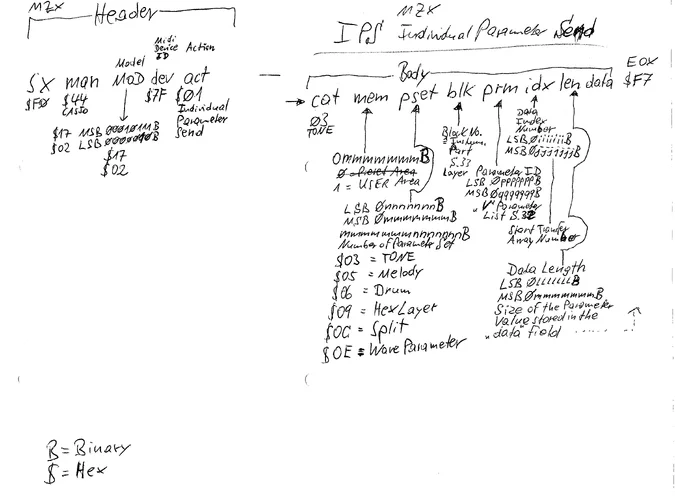 MZX
Header
Model
Midi
Device
ID
Action
SX man MOD dev act
$F0 $44 $7F $01
CASIO
Individual
Parameter
Send
$17 MSB 00010111B
$02 LSB
$17
$02
MZX
IPS Individual Parameter Send
Body
EOX
cat mem pset blk prm idx len data $F7
03
TONE
0mmmmmmmB
0 = Preset Area
1 = USER Area
LSB 0nnnnnnnB
MSB 0mmmmmmmB
mmmmmmmnnnnnnnB
Number of Parameter Set
$03 = TONE
$05 = Melody
$06 = Drum
$09 = HexLayer
$0C = Split
$0E = Wave Parameter
Block No.
= Instrum.
Part
S.33
Layer
Parameter ID
LSB 0pppppppB
MSB 0qqqqqqqB
"V" Parameter
List S.32
Data
Index
Number
LSB 0iiiiiiiB
MSB 0jjjjjjjB
Start Transfer
Array Number
Data Length
LSB 0lllllllB
MSB 0mmmmmmmB
Size of the Parameter
Value stored in the
"data" field
B = Binary
$ = Hex